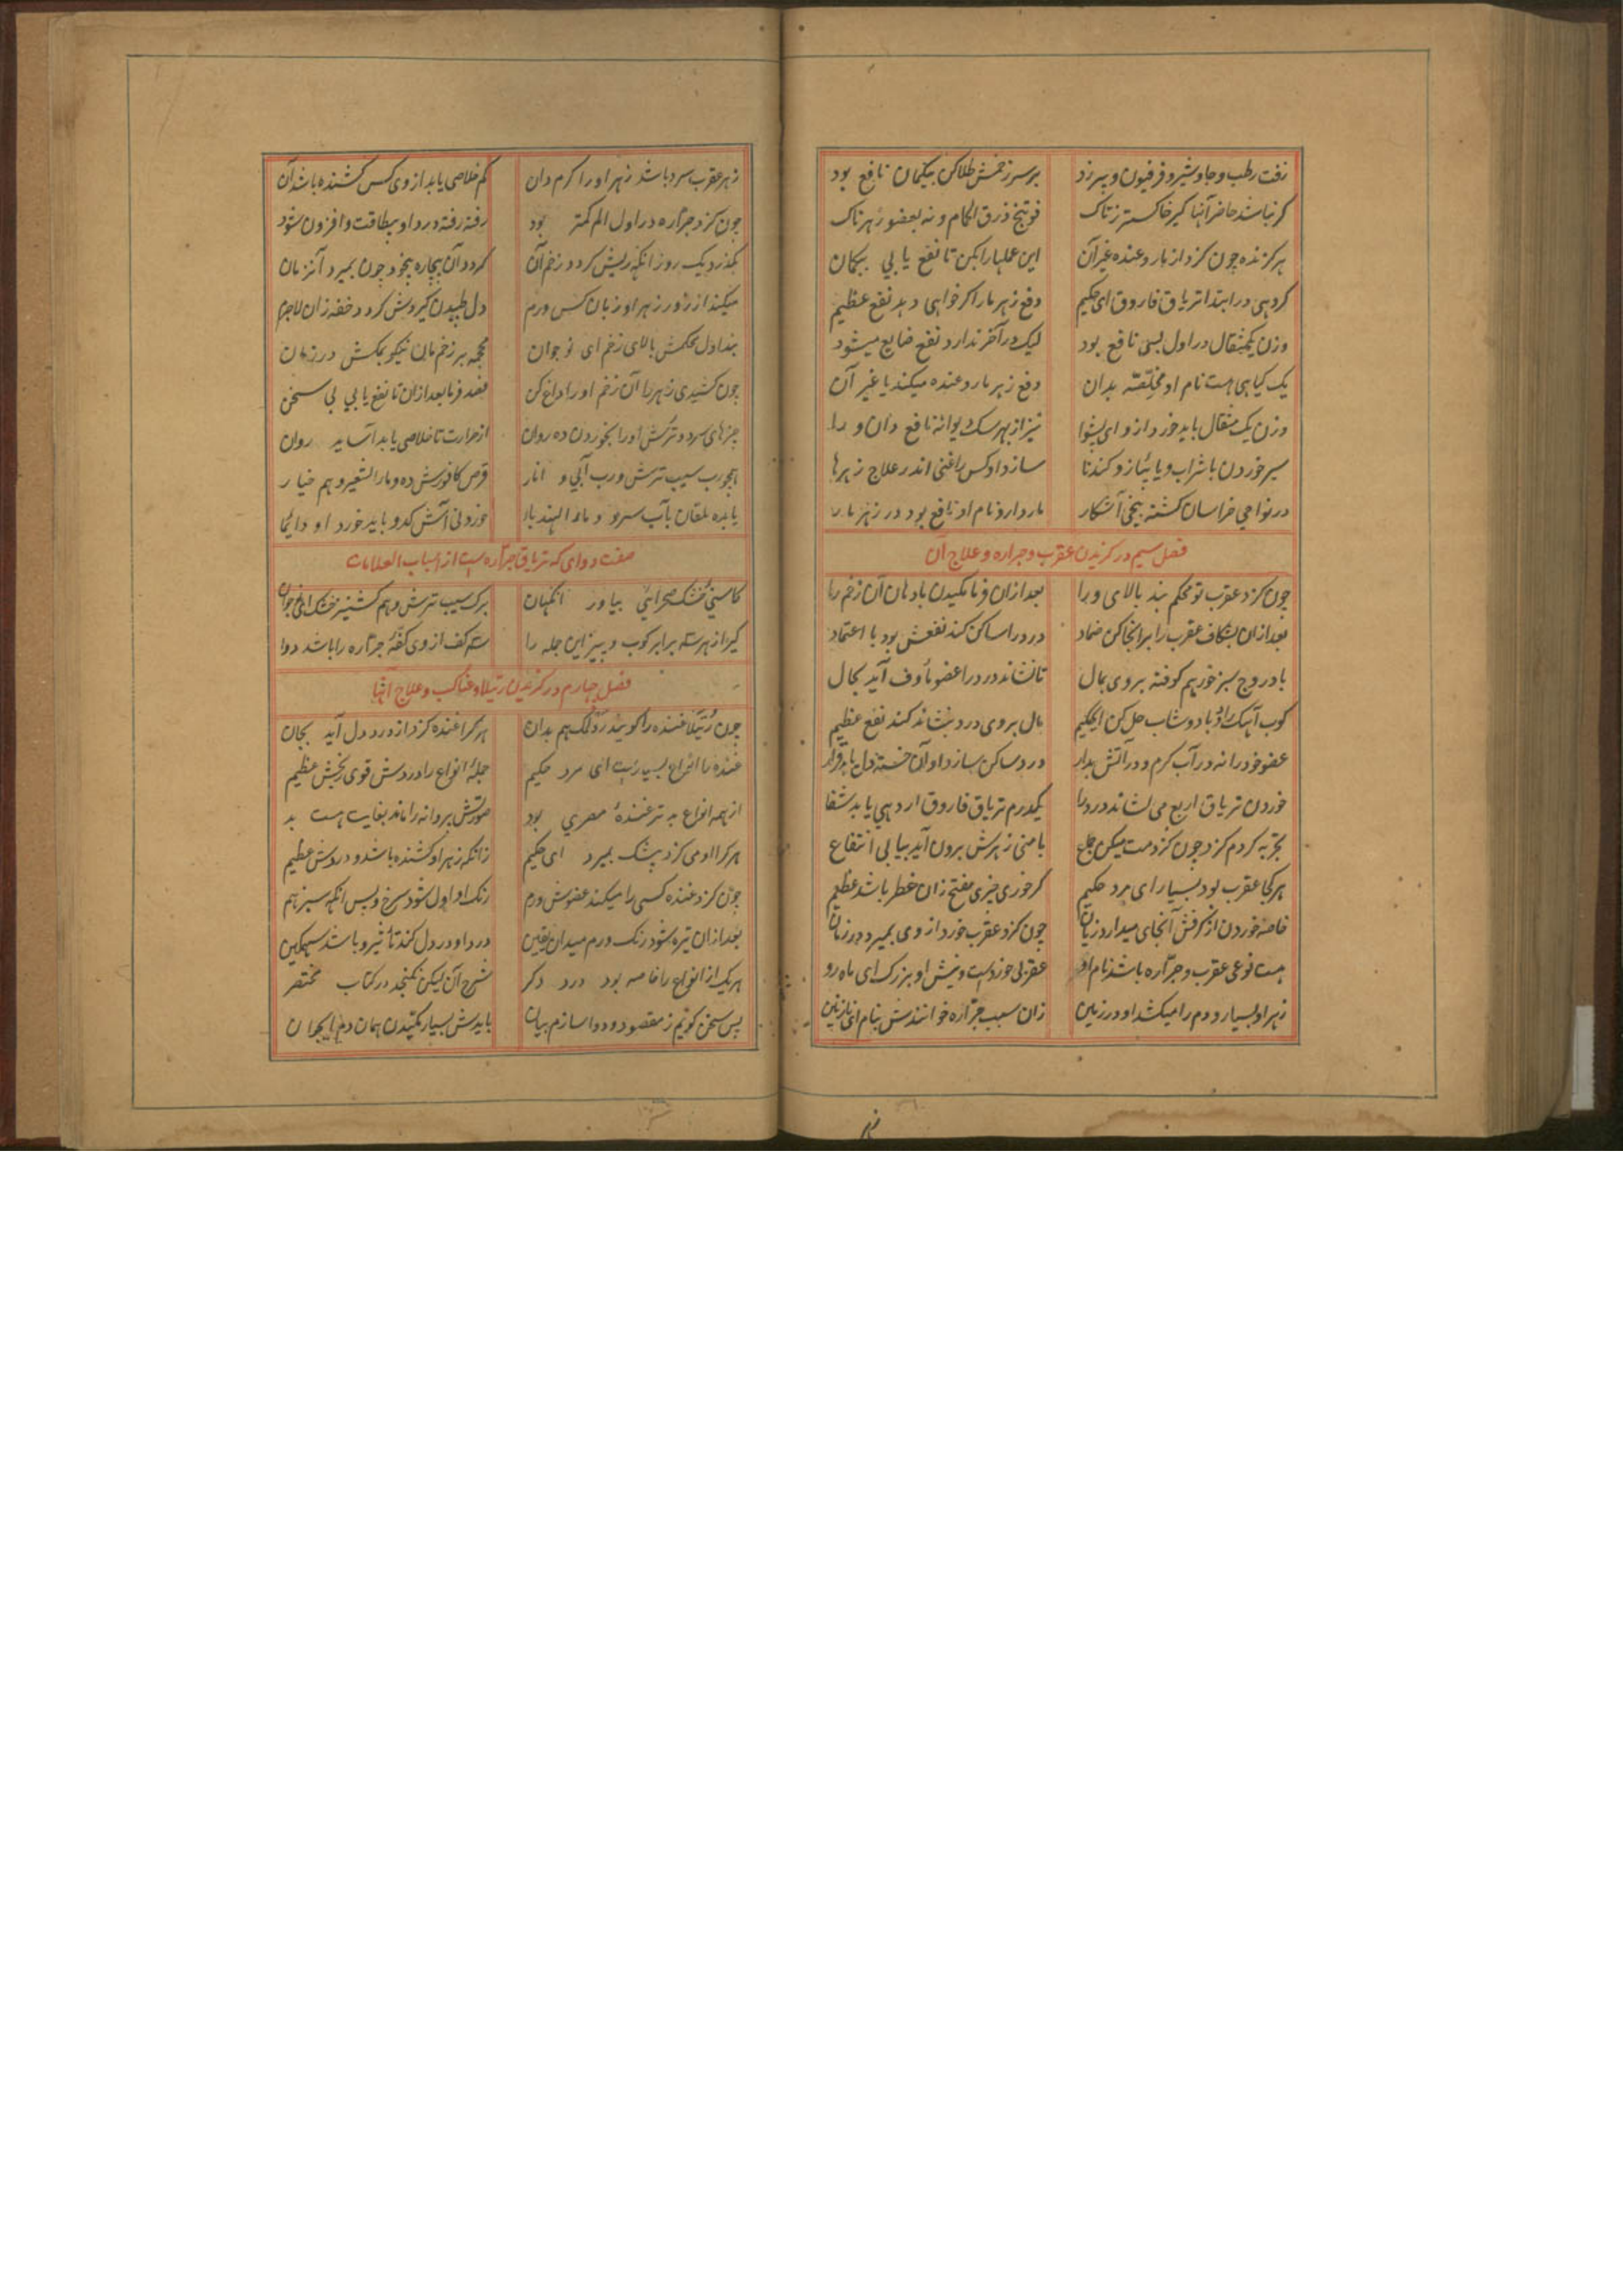 زفت رطب و جاوشیر و فرفیون و بیرزد برسر زخمش طلا کن بیکمان نافع بود
کر نباشد حاضر آنها کیر خاکستر ز تاک فوتنج ذرق الحمام و نه بعضو زهرناک
هر کزنده چون کزد از مار و غنده غیر آن این عملها را بکن تا نفع یابی بیکمان
کر دهی در ابتدا تریاق فاروق ای حکیم دفع زهر مار اکر خواهی دهد نفع عظیم
وزن یکمثقال در اول بسی نافع بود لیک در آخر ندارد نفع ضایع میشود
یک کیاهی هست نام او مخلّصه بدان دفع زهر مار و غنده میکند با غیر آن
وزن یک مثقال باید خورد از و ای پیشوا نیز از بهر سک دیوانه نافع دان ورا
سیر خوردن با شراب و یا پیاز و کندنا سازد او کس را غنی اندر علاج زهرها
در نواحی خراسان کشته بیخی آشکار مارداروَ نام او نافع بود در زهر مار
فصل سیم در کزیدن عقرب و جراره و علاج آن
چون کزد عقرب تو محکم بند بالای ورا بعد ازان فرما مکیدن با دهان آن زخم را
بعد ازان بشکاف عقرب را برانجا کن ضماد درد را ساکن کند نفعش بود با اعتماد
بادروج سبز خور هم کوفته بر وی بمال تا نشاند درد را عضو مأوف آید بحال
کوب آهک را و با دوشاب حل کن ای حکیم مال بر وی درد بنشاند کند نفع عظیم
عضو خود را نه در آب کرم و در آتش بدار درد ساکن سازد او آن خسته دل یابد قرار
خوردن تریاق اربع می نشاند درد را یکدرم تریاق فاروق ار دهی یابد شفا
تجربه کردم کزد چون کزدمت میکن جماع با منی زهرش برون آید بیابی انتفاع
هر کجا عقرب بود بسیار ای مرد حکیم کر خوری چیزی مفتح زان خطر باشد عظیم
خاصه خوردن از کرفس آنجای میدارد زیان چون کزد عقرب خورد از وی بمیرد در زمان
هست نوعی عقرب و جرّاره باشد نام او عقربی خوردست و نیش او بزرک ای ماه رو
زهر او بسیار و دم را میکشد او در زمین زان سبب جرّاره خوانندش بنام ای نازنین
زهر
زهر عقرب سرد باشد زهر او را کرم دان کم خلاصی یابد از وی کس کشنده باشد آن
چون کزد جرّاره در اول الم کمتر بود رفته رفته درد او بیطاقت و افزون شود
بکذرد یک روز انکه ریش کردد زخم آن کردد آن بیچاره بیخود چون بمیرد آنزمان
میکند از زور زهر او زبان کس ورم دل طپیدن کیردش کردد خفه زان لاجرم
بند اول محکمش بالای زخم ای نوجوان محجمه بر زخم مان نیکو بمکش در زمان
چون کشیدی زهر را آن زخم او را داغ کن فصد فرما بعد ازان تا نفع یابی بی سخن
چیزهای سرد و ترش او را بخوردن ده روان از حرارت تا خلاصی یابد آساید روان
همچو رب سیب ترش و رب آبی و انار قرص کافورش ده و ماء الشعیر و هم خیار
یا بده بآب سرد و ماء الهندبا خوردنی آش کدو باید خورد او دایما
صفت دوای که تریاق جرّاره است از اسباب العلامات
کاسنیٔ خشک صحرائی بیاور آنکهان برک سیب ترش و هم کشنیز خشک ای جوان
کیر از هر سه برابر کوب و بیز این جمله را سه کف از وی جرّاره را باشد دوا
فصل چهارم در کزیدن رتیلا و عناکب و علاج آنها
چون رُتیلا غنده را کویند هم بدان هر کرا غنده کزد از درد دل آید بجان
غنده را انواع بسیارست ای مرد حکیم جملهٔ انواع را دردش قوی رنجش عظیم
از همه انواع بدتر غندهٔ مصری بود صورتش پروانه را ماند بغایت هست بد
هر کرا او می کزد بیشک بمیرد ای حکیم زانکه زهر او کشنده باشد و دردش عظیم
چون کزد غنده کسی را میکند عضوش ورم رنک او اول شود سرخ و پس انکه سبز هم
بعد ازان تیره شود رنک ورم میدان یقین درد او در دل کند تأثیر و باشد سهمکین
هر یک از انواع را خاصه بود درد دکر شرح آن لیکن نکنجد در کتاب مختصر
پس سخن کویم ز مقصود و دوا سازم بیان بایدش بسیار مکیدن همان دم